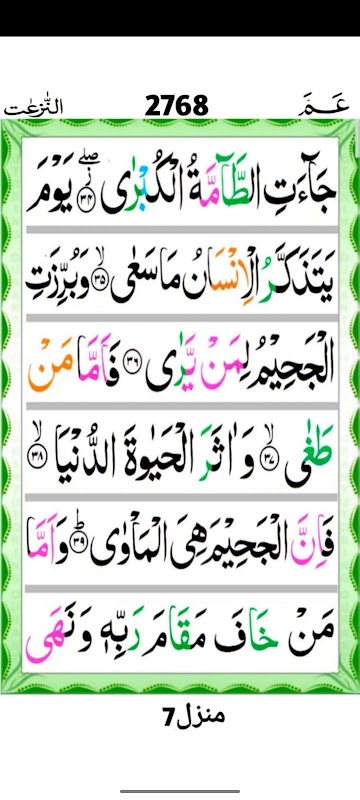 عَمَّ 2768 النّٰزعٰت
جَآءَتِ الطَّآمَّةُ الْكُبْرٰى ۖ﴿۳۴﴾ يَوْمَ
يَتَذَكَّرُ الْاِنْسَانُ مَا سَعٰى ۙ﴿۳۵﴾ وَبُرِّزَتِ
الْجَحِيْمُ لِمَنْ يَّرٰى ﴿۳۶﴾ فَاَمَّا مَنْ
طَغٰى ۙ﴿۳۷﴾ وَاٰثَرَ الْحَيٰوةَ الدُّنْيَا ۙ﴿۳۸﴾
فَاِنَّ الْجَحِيْمَ هِىَ الْمَاْوٰى ؕ﴿۳۹﴾ وَاَمَّا
مَنْ خَافَ مَقَامَ رَبِّهٖ وَنَهَى
منزل7